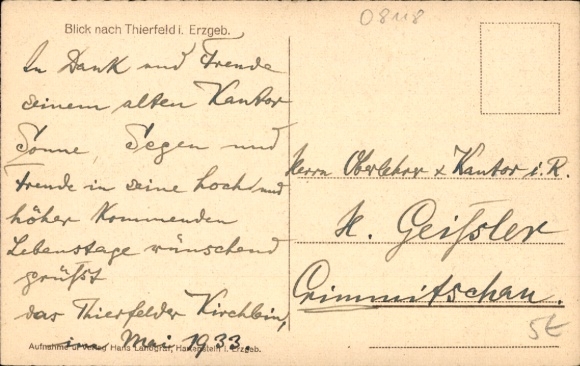 Blick nach Thierfeld i. Erzgeb.
In Dank und Freude
seinem alten Kantor
Sonne, Segen und
Freude in seine hoch und
höher kommenden
Lebenstage wünschend
grüßt
das Thierfelder Kirchlein,
im Mai 1933.
Aufnahme u. Verlag Hans Landgraf, Hartenstein i. Erzgeb.
08118
Herrn Oberlehrer & Kantor i. R.
H. Geißler
Crimmitschau.
5€